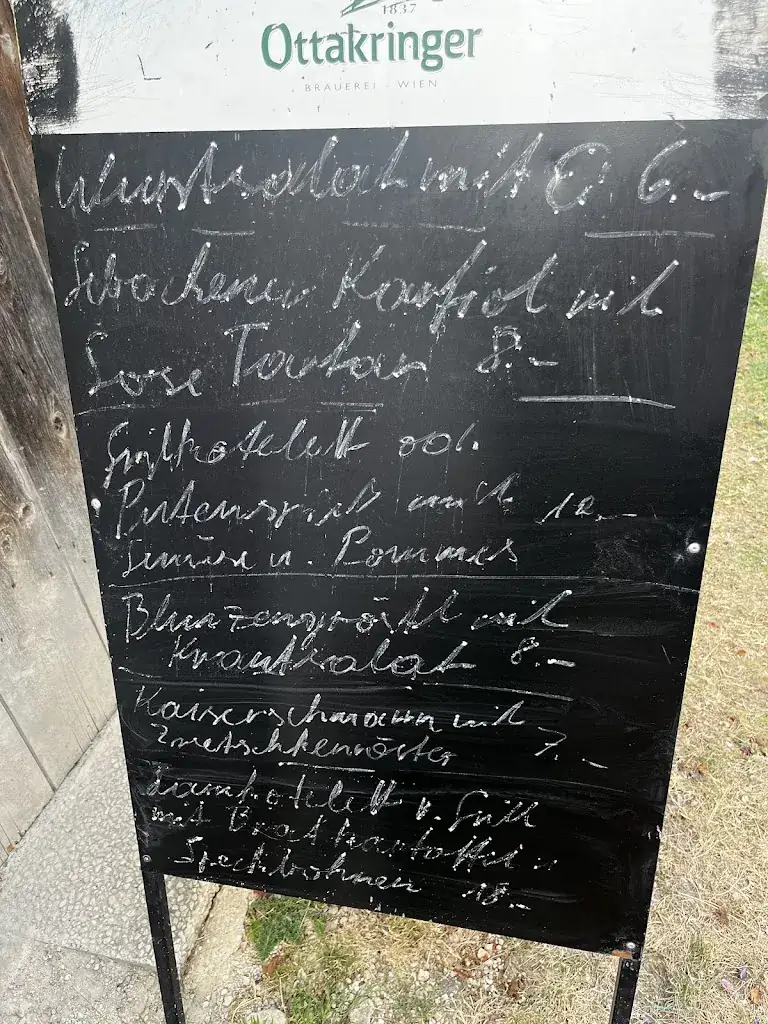 1837
Ottakringer
BRAUEREI · WIEN
Wurstsalat mit 6.-
Gebackener Karfiol mit
Sose Tartar 8.-
Grillkotelett od.
Putenspieß mit 12.-
Gemüse u. Pommes
Blunzengröstl mit
Krautsalat 8.-
Kaiserschmarrn mit
Zwetschkenröster 7.-
Lammkotelett v. Grill
mit Bratkartoffel u
Speckbohnen 18.-